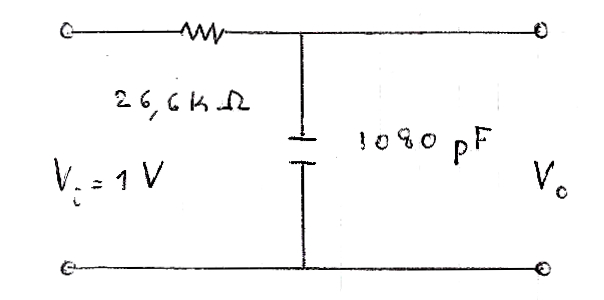 26,6kΩ
1080 pF
Vi = 1 V
Vo